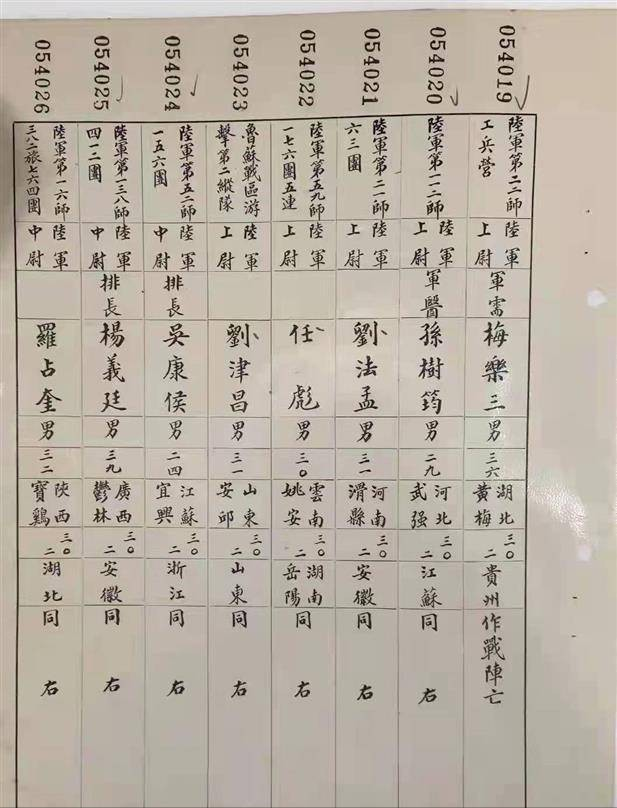 054019
陸軍第二二師
工兵營
陸軍
上尉
軍需
梅樂三
男
三六
湖北
黃梅
三〇
二
貴州
作戰陣亡
054020
陸軍第一二師
陸軍
上尉
軍醫
孫樹筠
男
二九
河北
武强
三〇
二
江蘇
同右
054021
陸軍第二一師
六三團
陸軍
上尉
劉法孟
男
三一
河南
滑縣
三〇
二
安徽
同右
054022
陸軍第五九師
一七六團五連
陸軍
上尉
任彪
男
三〇
雲南
姚安
三〇
二
湖南
岳陽
同右
054023
魯蘇戰區游
擊第二縱隊
陸軍
上尉
劉津昌
男
三一
山東
安邱
三〇
二
山東
同右
054024
陸軍第五二師
一五六團
陸軍
中尉
排長
吳康侯
男
二四
江蘇
宜興
三〇
二
浙江
同右
054025
陸軍第一三八師
四一二團
陸軍
中尉
排長
楊義廷
男
三九
廣西
鬱林
三〇
二
安徽
同右
054026
陸軍第一六師
三八二旅七六四團
陸軍
中尉
羅占奎
男
三二
陝西
寶鷄
三〇
二
湖北
同右